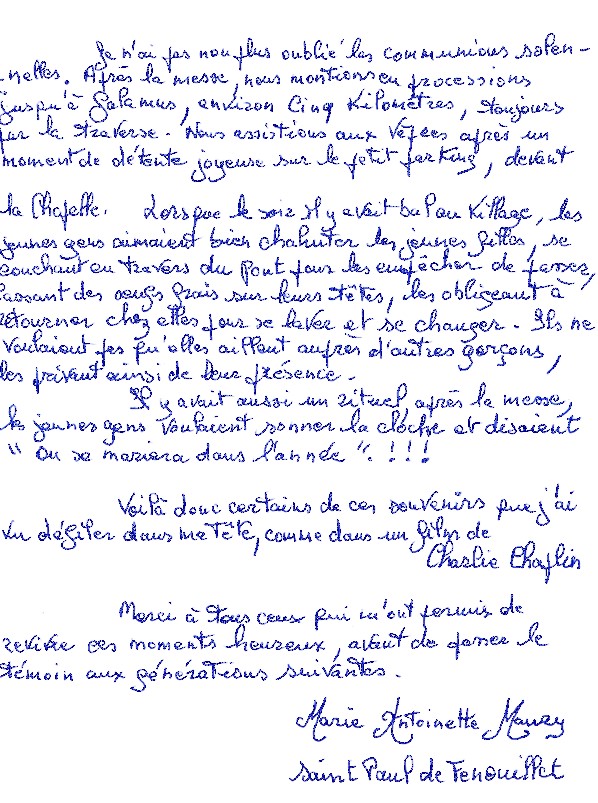 Je n'ai pas non plus oublié les communions solen-
nelles. Après la messe, nous montions en processions
jusqu'à Galamus, environ Cinq Kilomètres, toujours
par la traverse. Nous assistions aux Vêpres après un
moment de détente joyeuse sur le petit parking, devant
la Chapelle. Lorsque le soir il y avait bal au Village, les
jeunes gens aimaient bien chahuter les jeunes filles, se
couchant en travers du Pont pour les empêcher de passer,
cassant des oeufs frais sur leurs têtes, les obligeant à
retourner chez elles pour se laver et se changer. Ils ne
voulaient pas qu'elles aillent auprès d'autres garçons,
les privant ainsi de leur présence.
Il y avait aussi un rituel, après la messe,
les jeunes gens voulaient sonner la cloche et disaient
" On se mariera dans l'année ". !!!
Voilà donc certains de ces souvenirs que j'ai
vu défiler dans ma tête, comme dans un film de
Charlie Chaplin
Merci à tous ceux qui m'ont permis de
revivre ces moments heureux, avant de passer le
témoin aux générations suivantes.
Marie Antoinette Maury
Saint Paul de Fenouillet